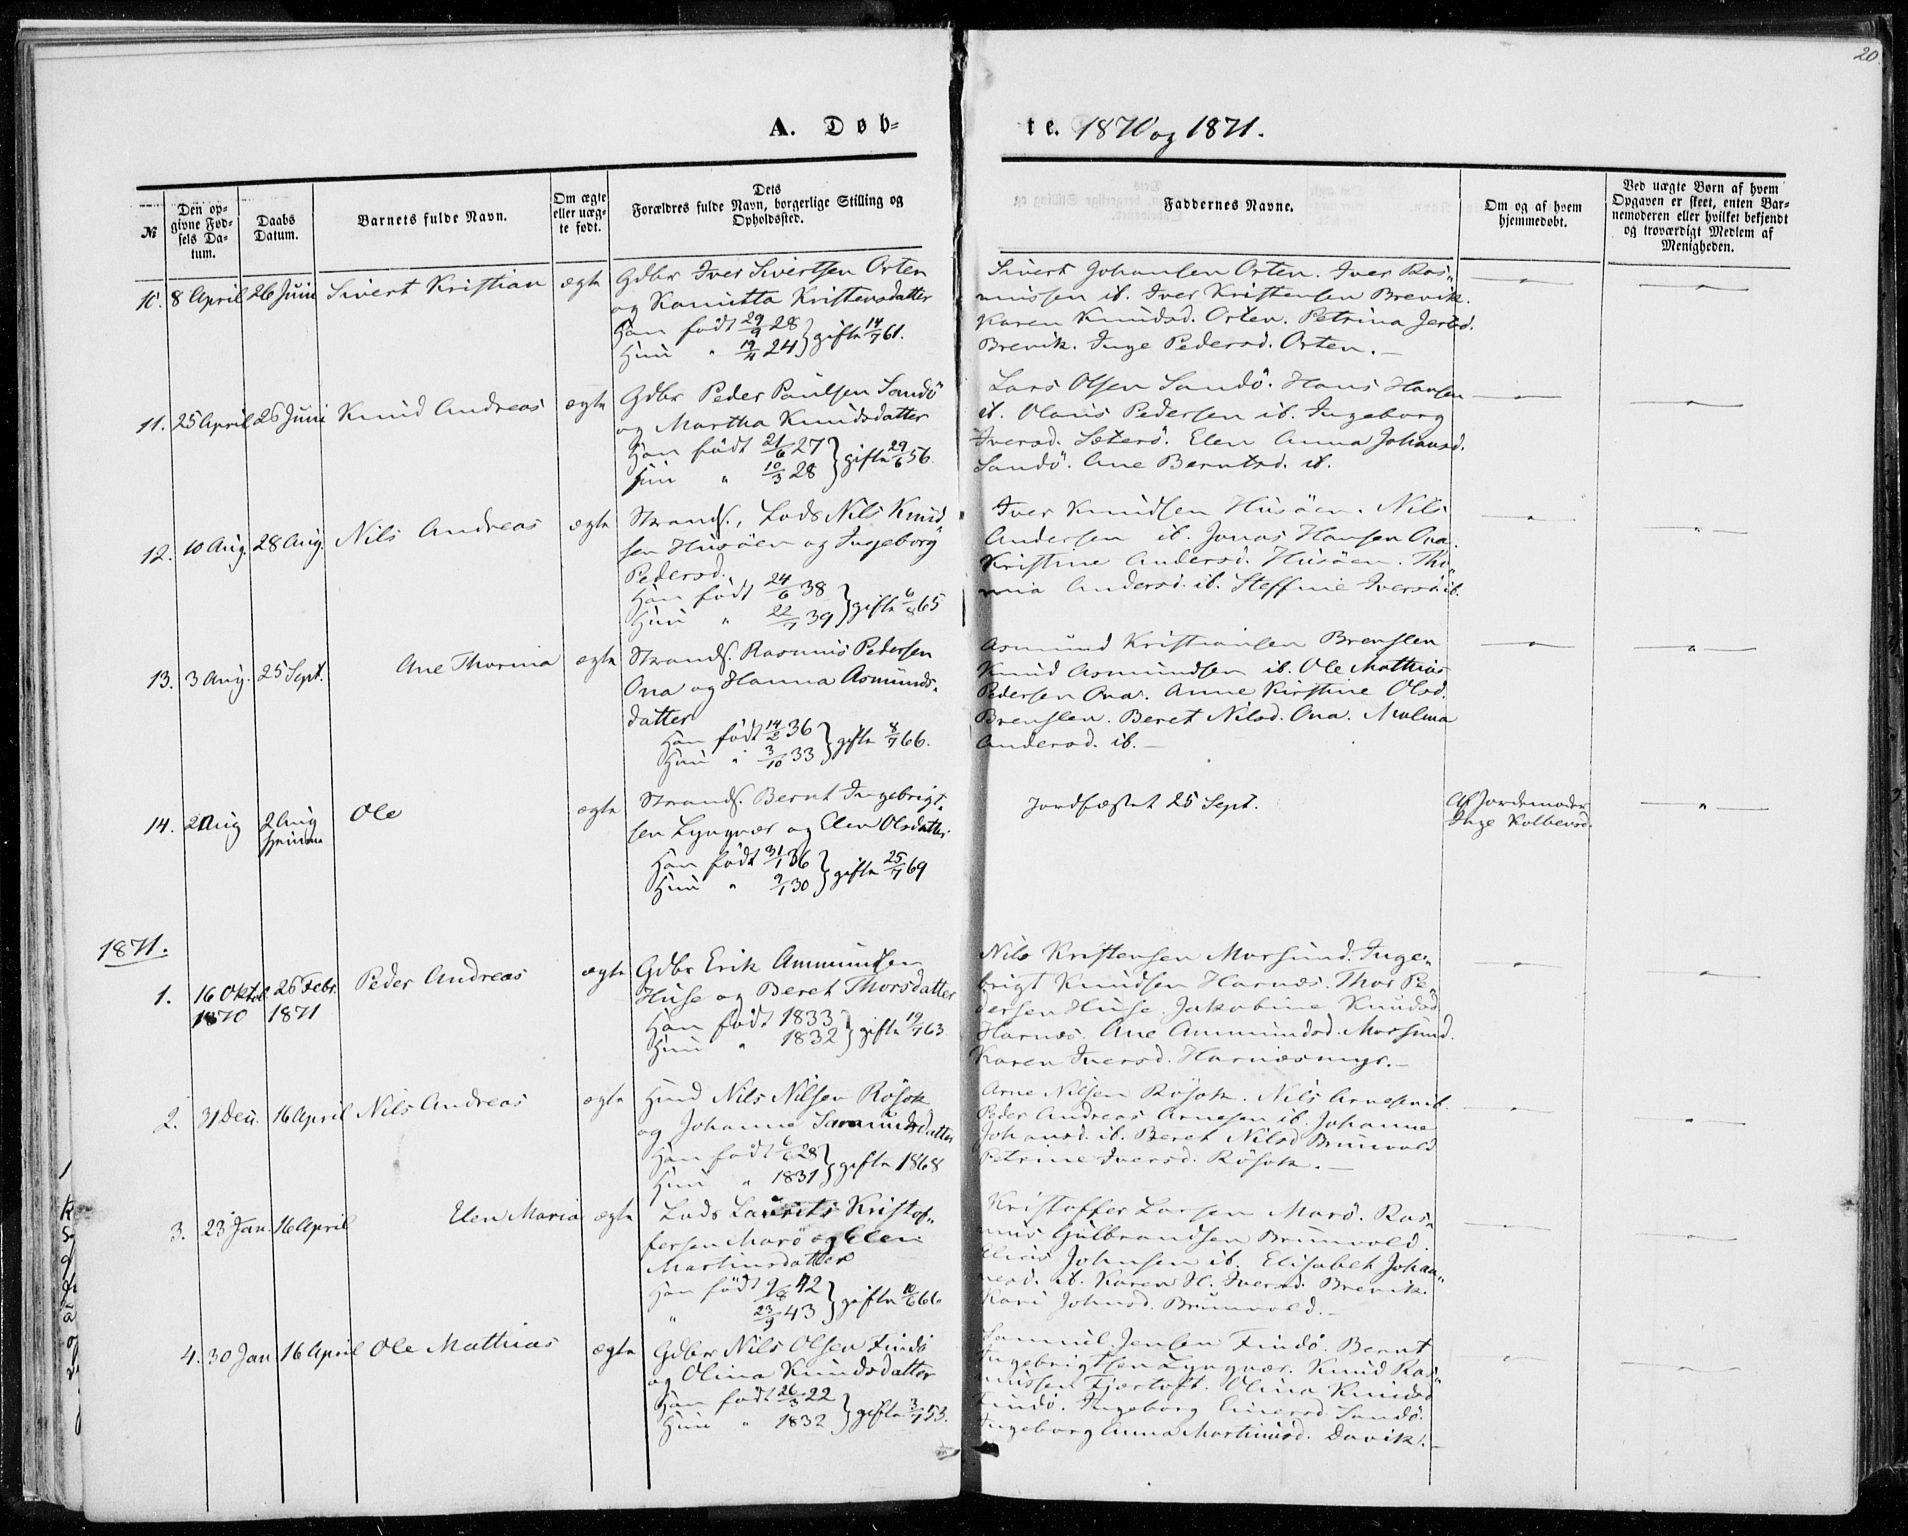 20.
A. Døb-
te. 1870 og 1871.
№
Den op-
givne Fød-
sels Da-
tum.
Daabs
Datum.
Barnets fulde Navn.
Om ægte
eller uæg-
te født.
Dets
Forældres fulde Navn, borgerlige Stilling og
Opholdssted.
Faddernes Navne.
Om og af hvem
hjemmedøbt.
Ved uægte Børn af hvem
Opgaven er skeet, enten Bar-
nemoderen eller hvilket bekjendt
og troværdigt Medlem af
Menigheden.
10. 8 April 26 Juni Sivert Kristian ægte
Gdbr Iver Sivertsen Orten
og Kanutta Kristensdatter
Han født 29/9 28 } gifte 14/7 61.
Hun " 19/4 24
Sivert Johansen Orten. Iver Ras-
mussen ib. Iver Kristensen Brevik.
Karen Knudsd. Orten. Petrina
Brevik. Inge Pedersd. Orten. —
11. 25 April 26 Juni Knud Andreas ægte
Gdbr Peder Paulsen Sandö
og Martha Knudsdatter
Han født 21/6 27 } gifte 29/6 56.
Hun " 10/3 28
Lars Olsen Sandö. Hans Hansen
ib. Olaus Pedersen ib. Ingeborg
Iversd. Sæterö. Elen Anna Johansd.
Sandö. Ane Berntsd. ib.
12. 10 Aug. 28 Aug. Nils Andreas ægte
Strands., Lods Nils Knud-
sen Husöen og Ingeborg
Pedersd.
Han født 24/6 38 } gifte 6/8 65
Hun " 22/7 39
Iver Knudsen Husöen. Nils
Andersen ib. Jonas Hansen Ona.
Kristine Andersd. Husöen. Tho-
mia Andersd. ib. Steffine Iversd. ib.
13. 3 Aug. 25 Sept. Ane Thorina ægte
Strands. Rasmus Pedersen
Ona og Hanna Asmunds-
datter
Han født 14/2 36 } gifte 8/7 66.
Hun " 3/10 33
Asmund Kristiansen Brenslen
Knud Asmundsen ib. Ole Mathias
Pedersen Ona. Anne Kirstine Olsd.
Brenslen. Beret Nilsd. Ona. Malena
Andersd. ib. —
14. 2 Aug 2 Aug
hjemme
Ole ægte
Strands. Bernt Ingebrigt-
sen Lyngvær og Elen Olsdatter
Han født 31/1 36 } gifte 25/7 69
Hun " 9/1 30
Jordfæstet 25 Sept.
Af Jordemoder
Inge Kolbensd.
1871.
1. 16 Oktob. 26 Febr. Peder Andreas ægte
1870 1871
Gdbr Erik Ammundsen
Huse og Beret Thorsdatter
Han født 1833 } gifte 19/7 63
Hun " 1832
Nils Kristensen Morsund. Inge-
brigt Knudsen Harnæs. Thor Pe-
dersen Huse Jakobine Knudsd.
Harnæs. Ane Ammundsd. Morsund.
Karen Iversd. Harnæsmyr. —
2. 31 Dec. 16 April Nils Andreas ægte
Hmd Nils Nilsen Rösok
og Johanne
Han født 6/6 28 } gifte 1868
Hun " 1831
Arne Nilsen Rösok. Nils Arnesen ib.
Peder Andreas Arnesen ib. Johanne
Johansd. ib. Beret Nilsd Brunvold
Petrine Iversd. Rösok. —
3. 23 Jan. 16 April Elen Maria ægte
Lods Laurits Kristof-
fersen Marö og Elen
Martinsdatter
Han født 9/8 42 } gifte 10/6 66
" 23/9 43
Kristoffer Larsen Marö. Ras-
mus Gulbrandsen Brunvold.
Elias Johnsen ib. Elisabet Johan-
nesd. ib. Karen H. Iversd. Brevik.
Kari Johnsd. Brunvold. —
4. 30 Jan 16 April Ole Mathias ægte
Gdbr Nils Olsen Findö
og Olina Knudsdatter
Han født 26/3 22 } gifte 3/7 53.
Hun " 1832
Samuel Jensen Findö. Bernt
Ingebrigtsen Lyngvær. Knud Ras-
mussen Fjærtoft. Olina Knudsd
Findö. Ingeborg Einersd. Sandö.
Ingeborg Anna Martinusd. Davik. —